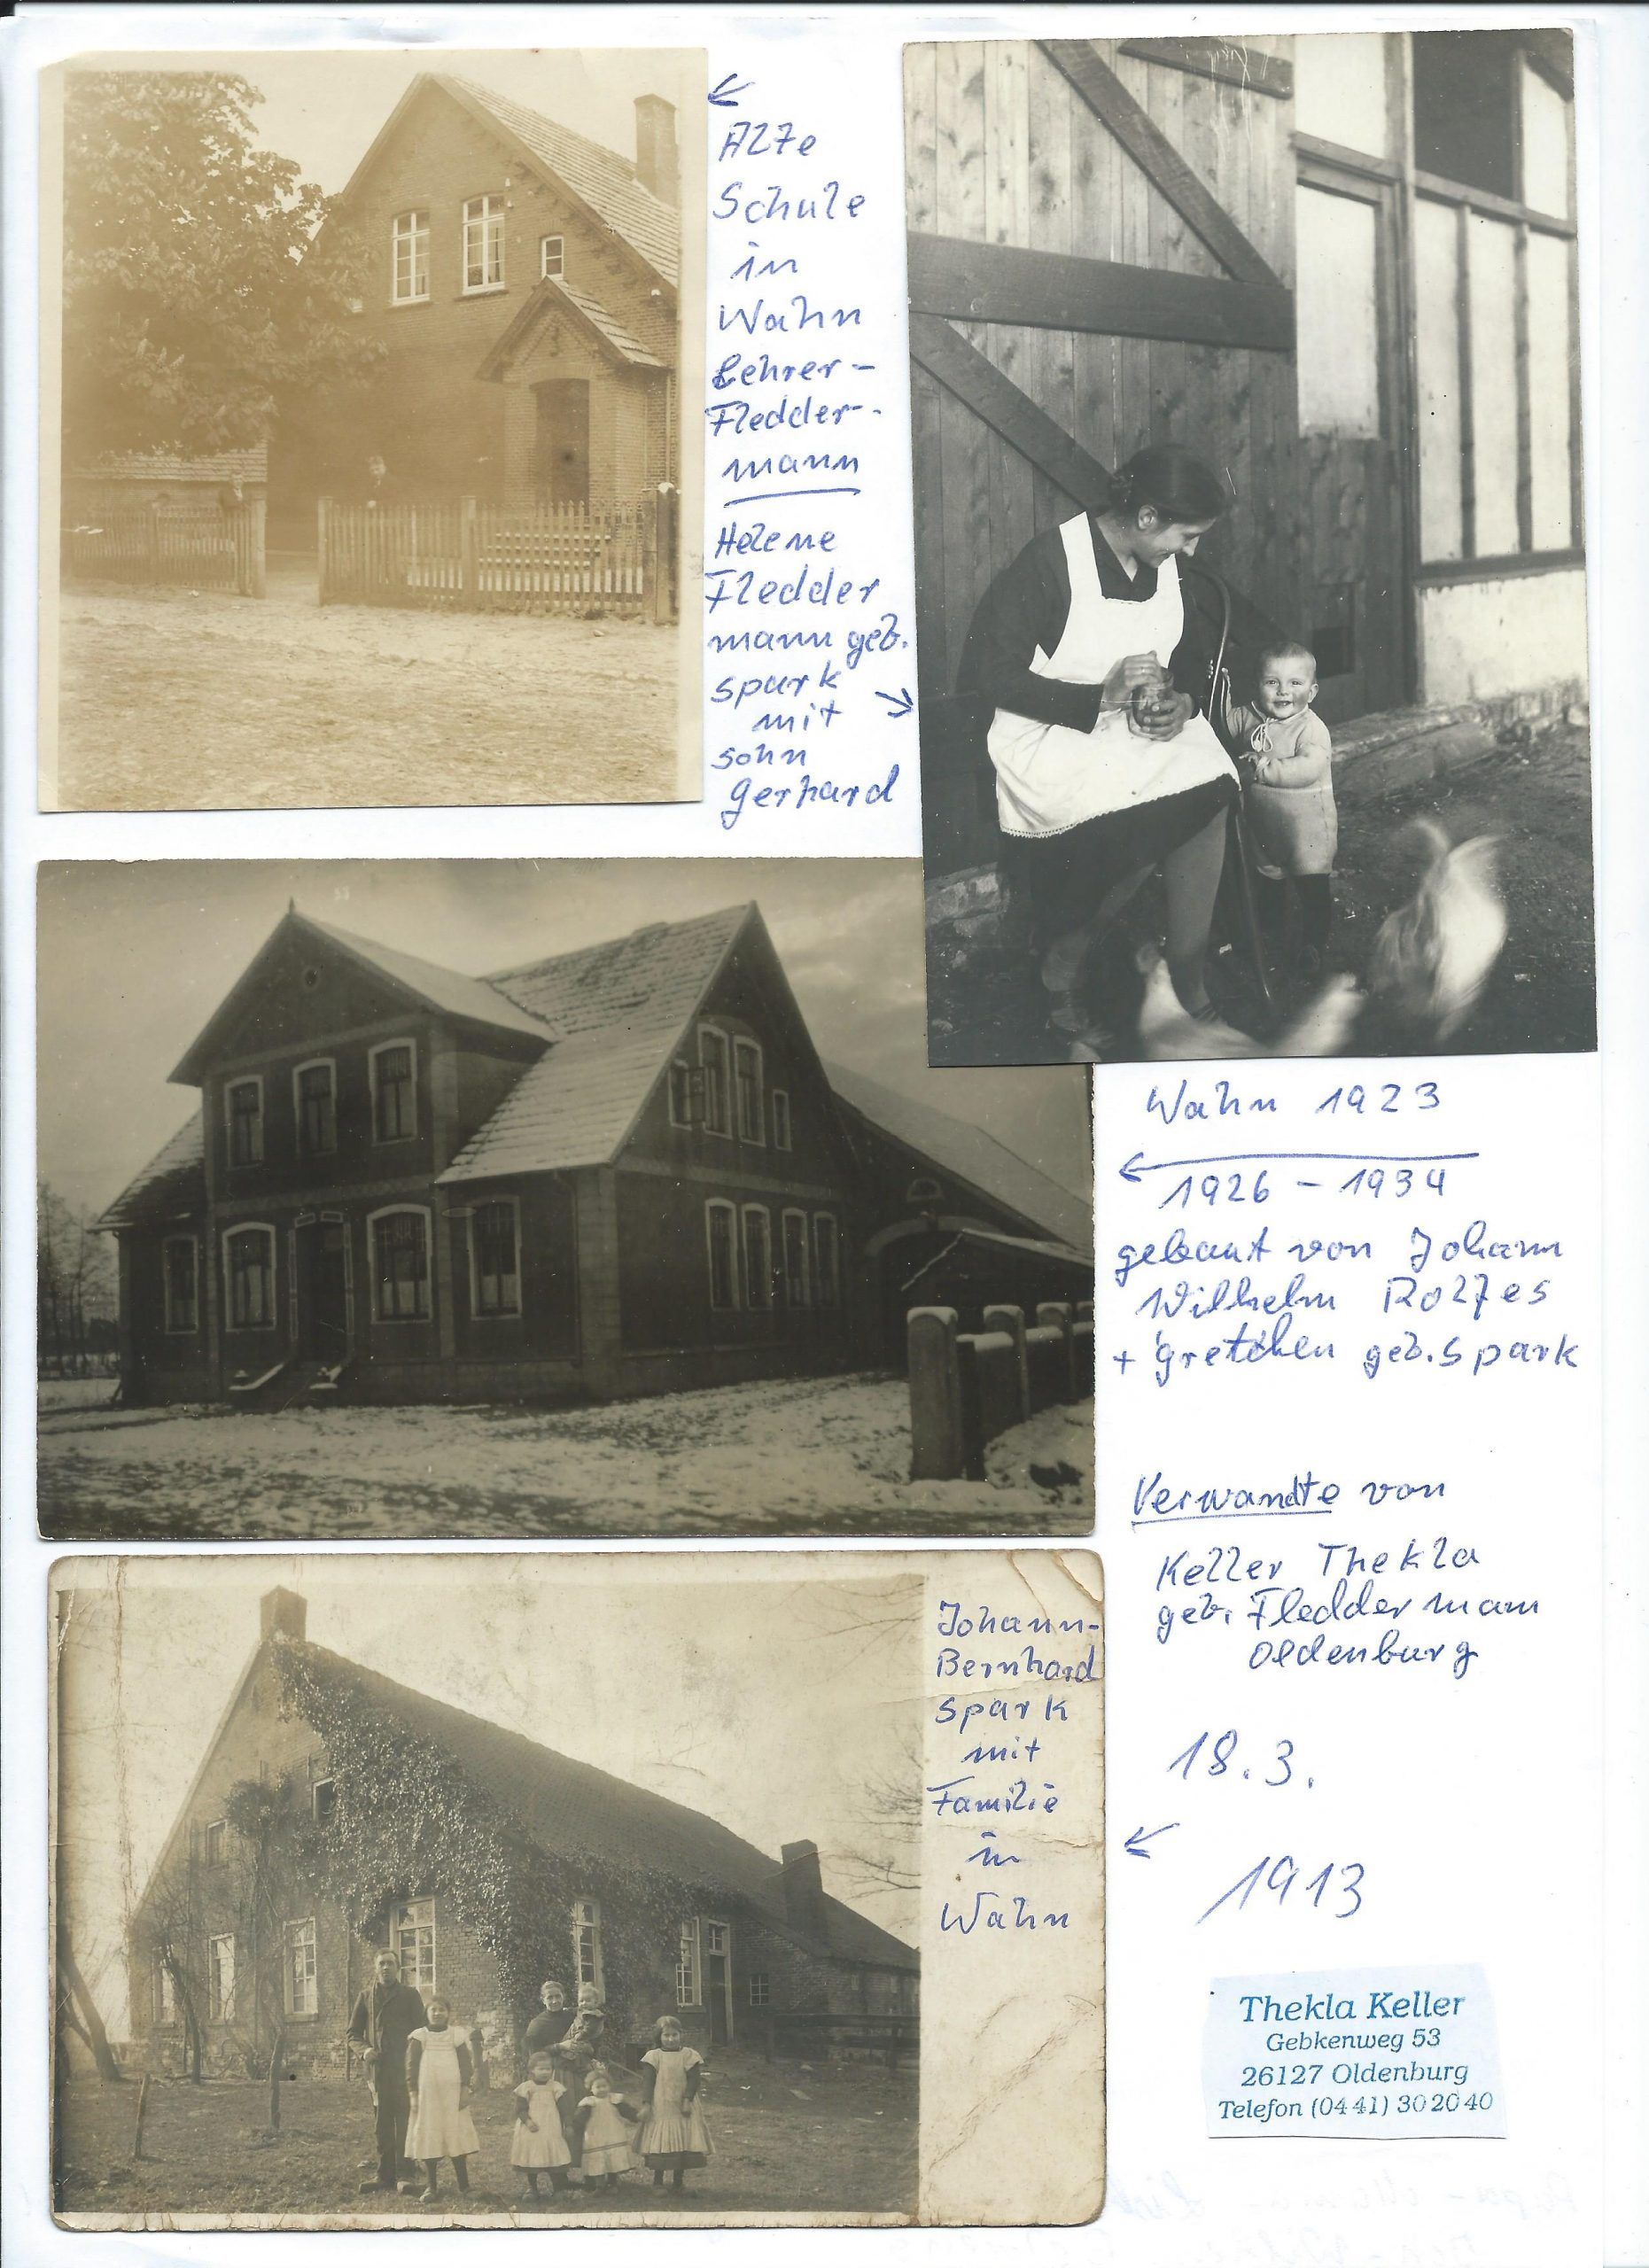 ←
Alte
Schule
in
Wahn
Lehrer-
Fledder-
mann
Helene
Fledder
mann geb.
Spark
mit →
Sohn
Gerhard
Wahn 1923
←
1926 - 1934
gebaut von Johann
Wilhelm Rolfes
+ Gretchen geb. Spark
Verwandte von
Keller Thekla
geb. Fleddermann
Oldenburg
Johann-
Bernhard
Spark
mit
Familie
in
Wahn
18.3.
←
1913
Thekla Keller
Gebkenweg 53
26127 Oldenburg
Telefon (04 41) 30 20 40